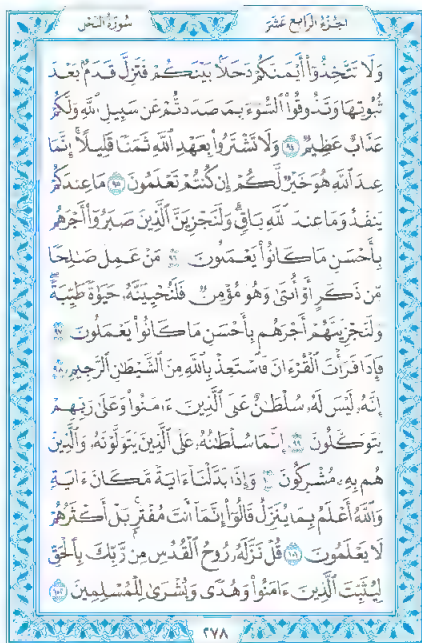 سُورَةُ النَّحْل
الجُزْءُ الرَّابِعَ عَشَرَ
وَلَا تَتَّخِذُوٓا۟ أَيْمَٰنَكُمْ دَخَلًۢا بَيْنَكُمْ فَتَزِلَّ قَدَمٌۢ بَعْدَ
ثُبُوتِهَا وَتَذُوقُوا۟ ٱلسُّوٓءَ بِمَا صَدَدتُّمْ عَن سَبِيلِ ٱللَّهِ وَلَكُمْ
عَذَابٌ عَظِيمٌ ٩٤ وَلَا تَشْتَرُوا۟ بِعَهْدِ ٱللَّهِ ثَمَنًا قَلِيلًا ۚ إِنَّمَا
عِندَ ٱللَّهِ هُوَ خَيْرٌ لَّكُمْ إِن كُنتُمْ تَعْلَمُونَ ٩٥ مَا عِندَكُمْ
يَنفَدُ وَمَا عِندَ ٱللَّهِ بَاقٍ ۗ وَلَنَجْزِيَنَّ ٱلَّذِينَ صَبَرُوٓا۟ أَجْرَهُم
بِأَحْسَنِ مَا كَانُوا۟ يَعْمَلُونَ ٩٦ مَنْ عَمِلَ صَٰلِحًا
مِّن ذَكَرٍ أَوْ أُنثَىٰ وَهُوَ مُؤْمِنٌ فَلَنُحْيِيَنَّهُۥ حَيَوٰةً طَيِّبَةً ۖ
وَلَنَجْزِيَنَّهُمْ أَجْرَهُم بِأَحْسَنِ مَا كَانُوا۟ يَعْمَلُونَ ٩٧
فَإِذَا قَرَأْتَ ٱلْقُرْءَانَ فَٱسْتَعِذْ بِٱللَّهِ مِنَ ٱلشَّيْطَٰنِ ٱلرَّجِيمِ ٩٨
إِنَّهُۥ لَيْسَ لَهُۥ سُلْطَٰنٌ عَلَى ٱلَّذِينَ ءَامَنُوا۟ وَعَلَىٰ رَبِّهِمْ
يَتَوَكَّلُونَ ٩٩ إِنَّمَا سُلْطَٰنُهُۥ عَلَى ٱلَّذِينَ يَتَوَلَّوْنَهُۥ وَٱلَّذِينَ
هُم بِهِۦ مُشْرِكُونَ ١٠٠ وَإِذَا بَدَّلْنَآ ءَايَةً مَّكَانَ ءَايَةٍ ۙ
وَٱللَّهُ أَعْلَمُ بِمَا يُنَزِّلُ قَالُوٓا۟ إِنَّمَآ أَنتَ مُفْتَرٍۭ ۚ بَلْ أَكْثَرُهُمْ
لَا يَعْلَمُونَ ١٠١ قُلْ نَزَّلَهُۥ رُوحُ ٱلْقُدُسِ مِن رَّبِّكَ بِٱلْحَقِّ
لِيُثَبِّتَ ٱلَّذِينَ ءَامَنُوا۟ وَهُدًى وَبُشْرَىٰ لِلْمُسْلِمِينَ ١٠٢
٢٧٨